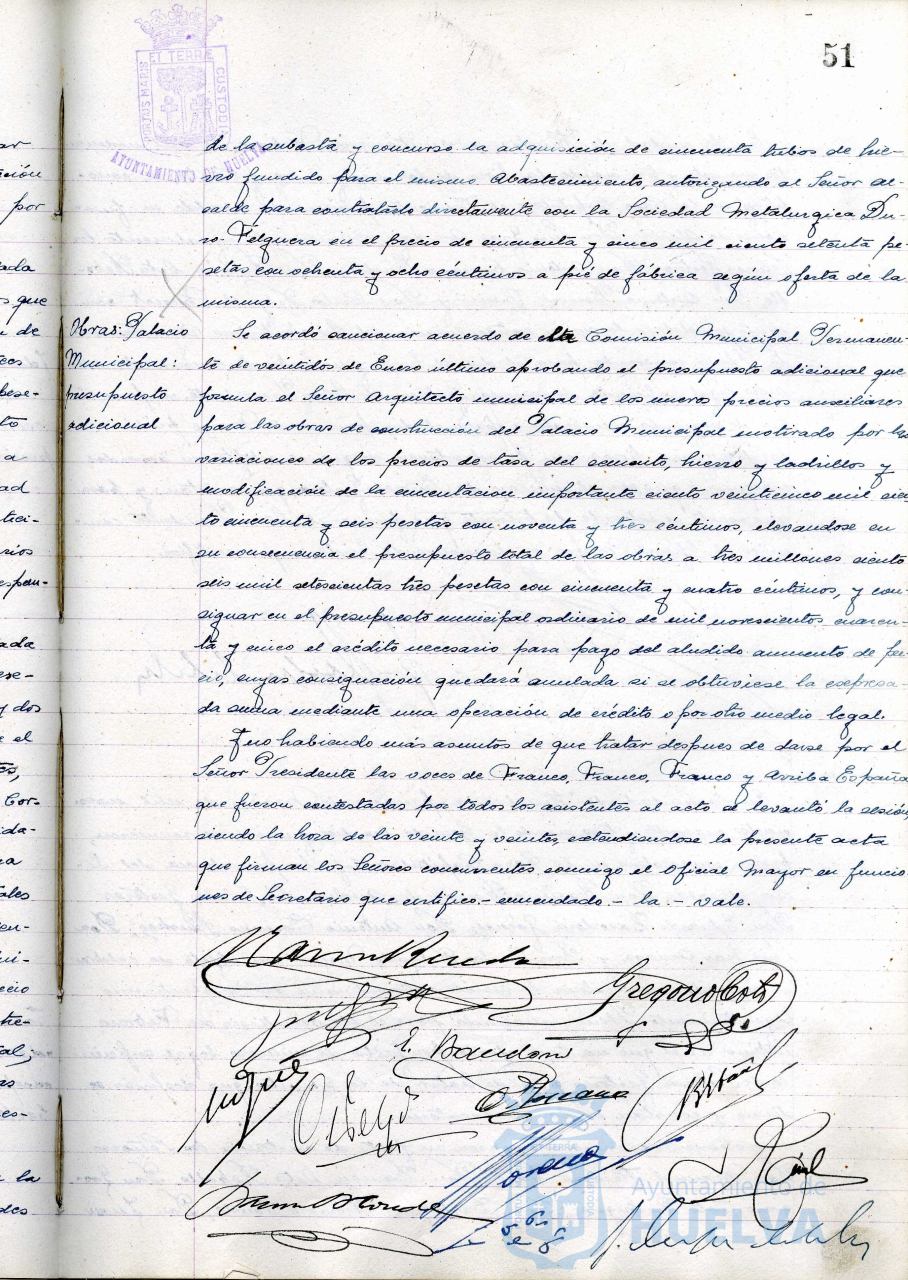 51
PORTUS MARIS ET TERRE CUSTODIA
AYUNTAMIENTO DE HUELVA
de la subasta y concurso la adquisición de cincuenta tubos de hie-
rro fundido para el mismo Abastecimiento, autorizando al Señor Al-
calde para contratarlo directamente con la Sociedad Metalurgica Du-
ro-Felguera en el precio de cincuenta y cinco mil ciento setenta pe-
setas con ochenta y ocho céntimos a pié de fábrica según oferta de la
misma.
Obras: Palacio
Municipal:
presupuesto
adicional
Se acordó sancionar acuerdo de la Comisión Municipal Permanen-
te de veintidós de Enero último aprobando el presupuesto adicional que
formula el Señor Arquitecto municipal de los nuevos precios auxiliares
para las obras de construcción del Palacio Municipal motivado por las
variaciones de los precios de tasa del cemento, hierro y ladrillos y
modificación de la cimentacion importante ciento veinticinco mil cien-
to cincuenta y seis pesetas con noventa y tres céntimos, elevandose en
su consecuencia el presupuesto total de las obras a tres millones ciento
seis mil setescientas tres pesetas con cincuenta y cuatro céntimos, y con-
signar en el presupuesto municipal ordinario de mil novescientos cuaren-
ta y cinco el crédito necesario para pago del aludido aumento de pre-
cio, cuyas consignación quedará anulada si se obtuviese la expresa-
da suma mediante una operación de crédito o por otro medio legal.
Y no habiendo más asuntos de que tratar despues de darse por el
Señor Presidente las voces de Franco, Franco, Franco y Arriba España
que fueron contestadas por todos los asistentes al acto se levantó la sesión,
siendo la hora de las veinte y veinte, extendiendose la presente acta
que firman los Señores concurrentes conmigo el Oficial Mayor en funcio
nes de Secretario que certifico.- enmendado.- la.- vale.
Gregorio
Ayuntamiento de
HUELVA